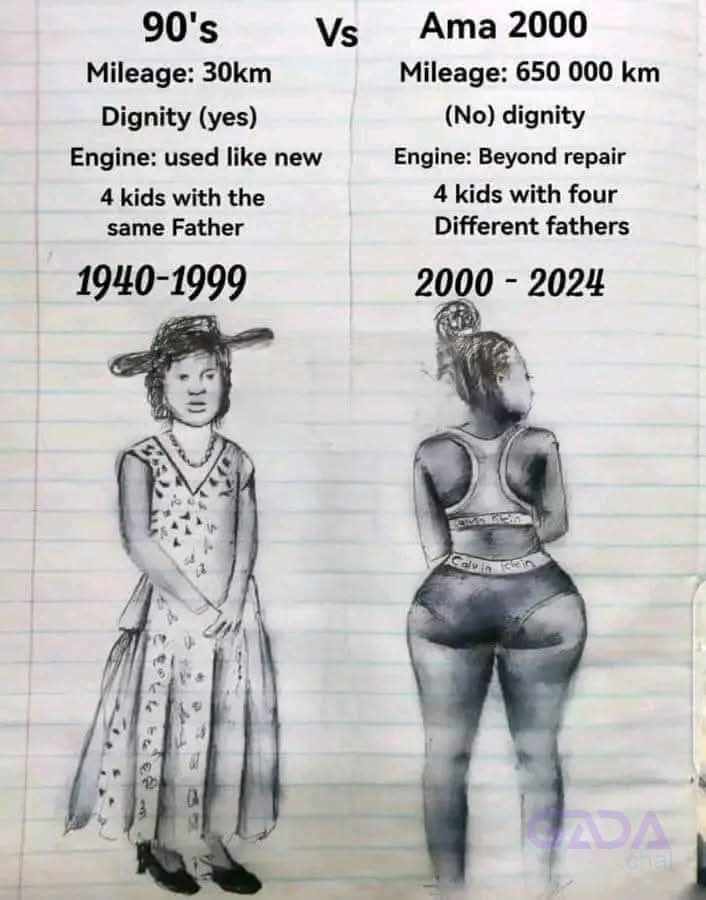 90's
Vs
Ama 2000
Mileage: 30km
Dignity (yes)
Engine: used like new
4 kids with the
same Father
1940-1999
Mileage: 650 000 km
(No) dignity
Engine: Beyond repair
4 kids with four
Different fathers
2000 - 2024
Calvin Klein
Calvin Klein
GADA
.chat